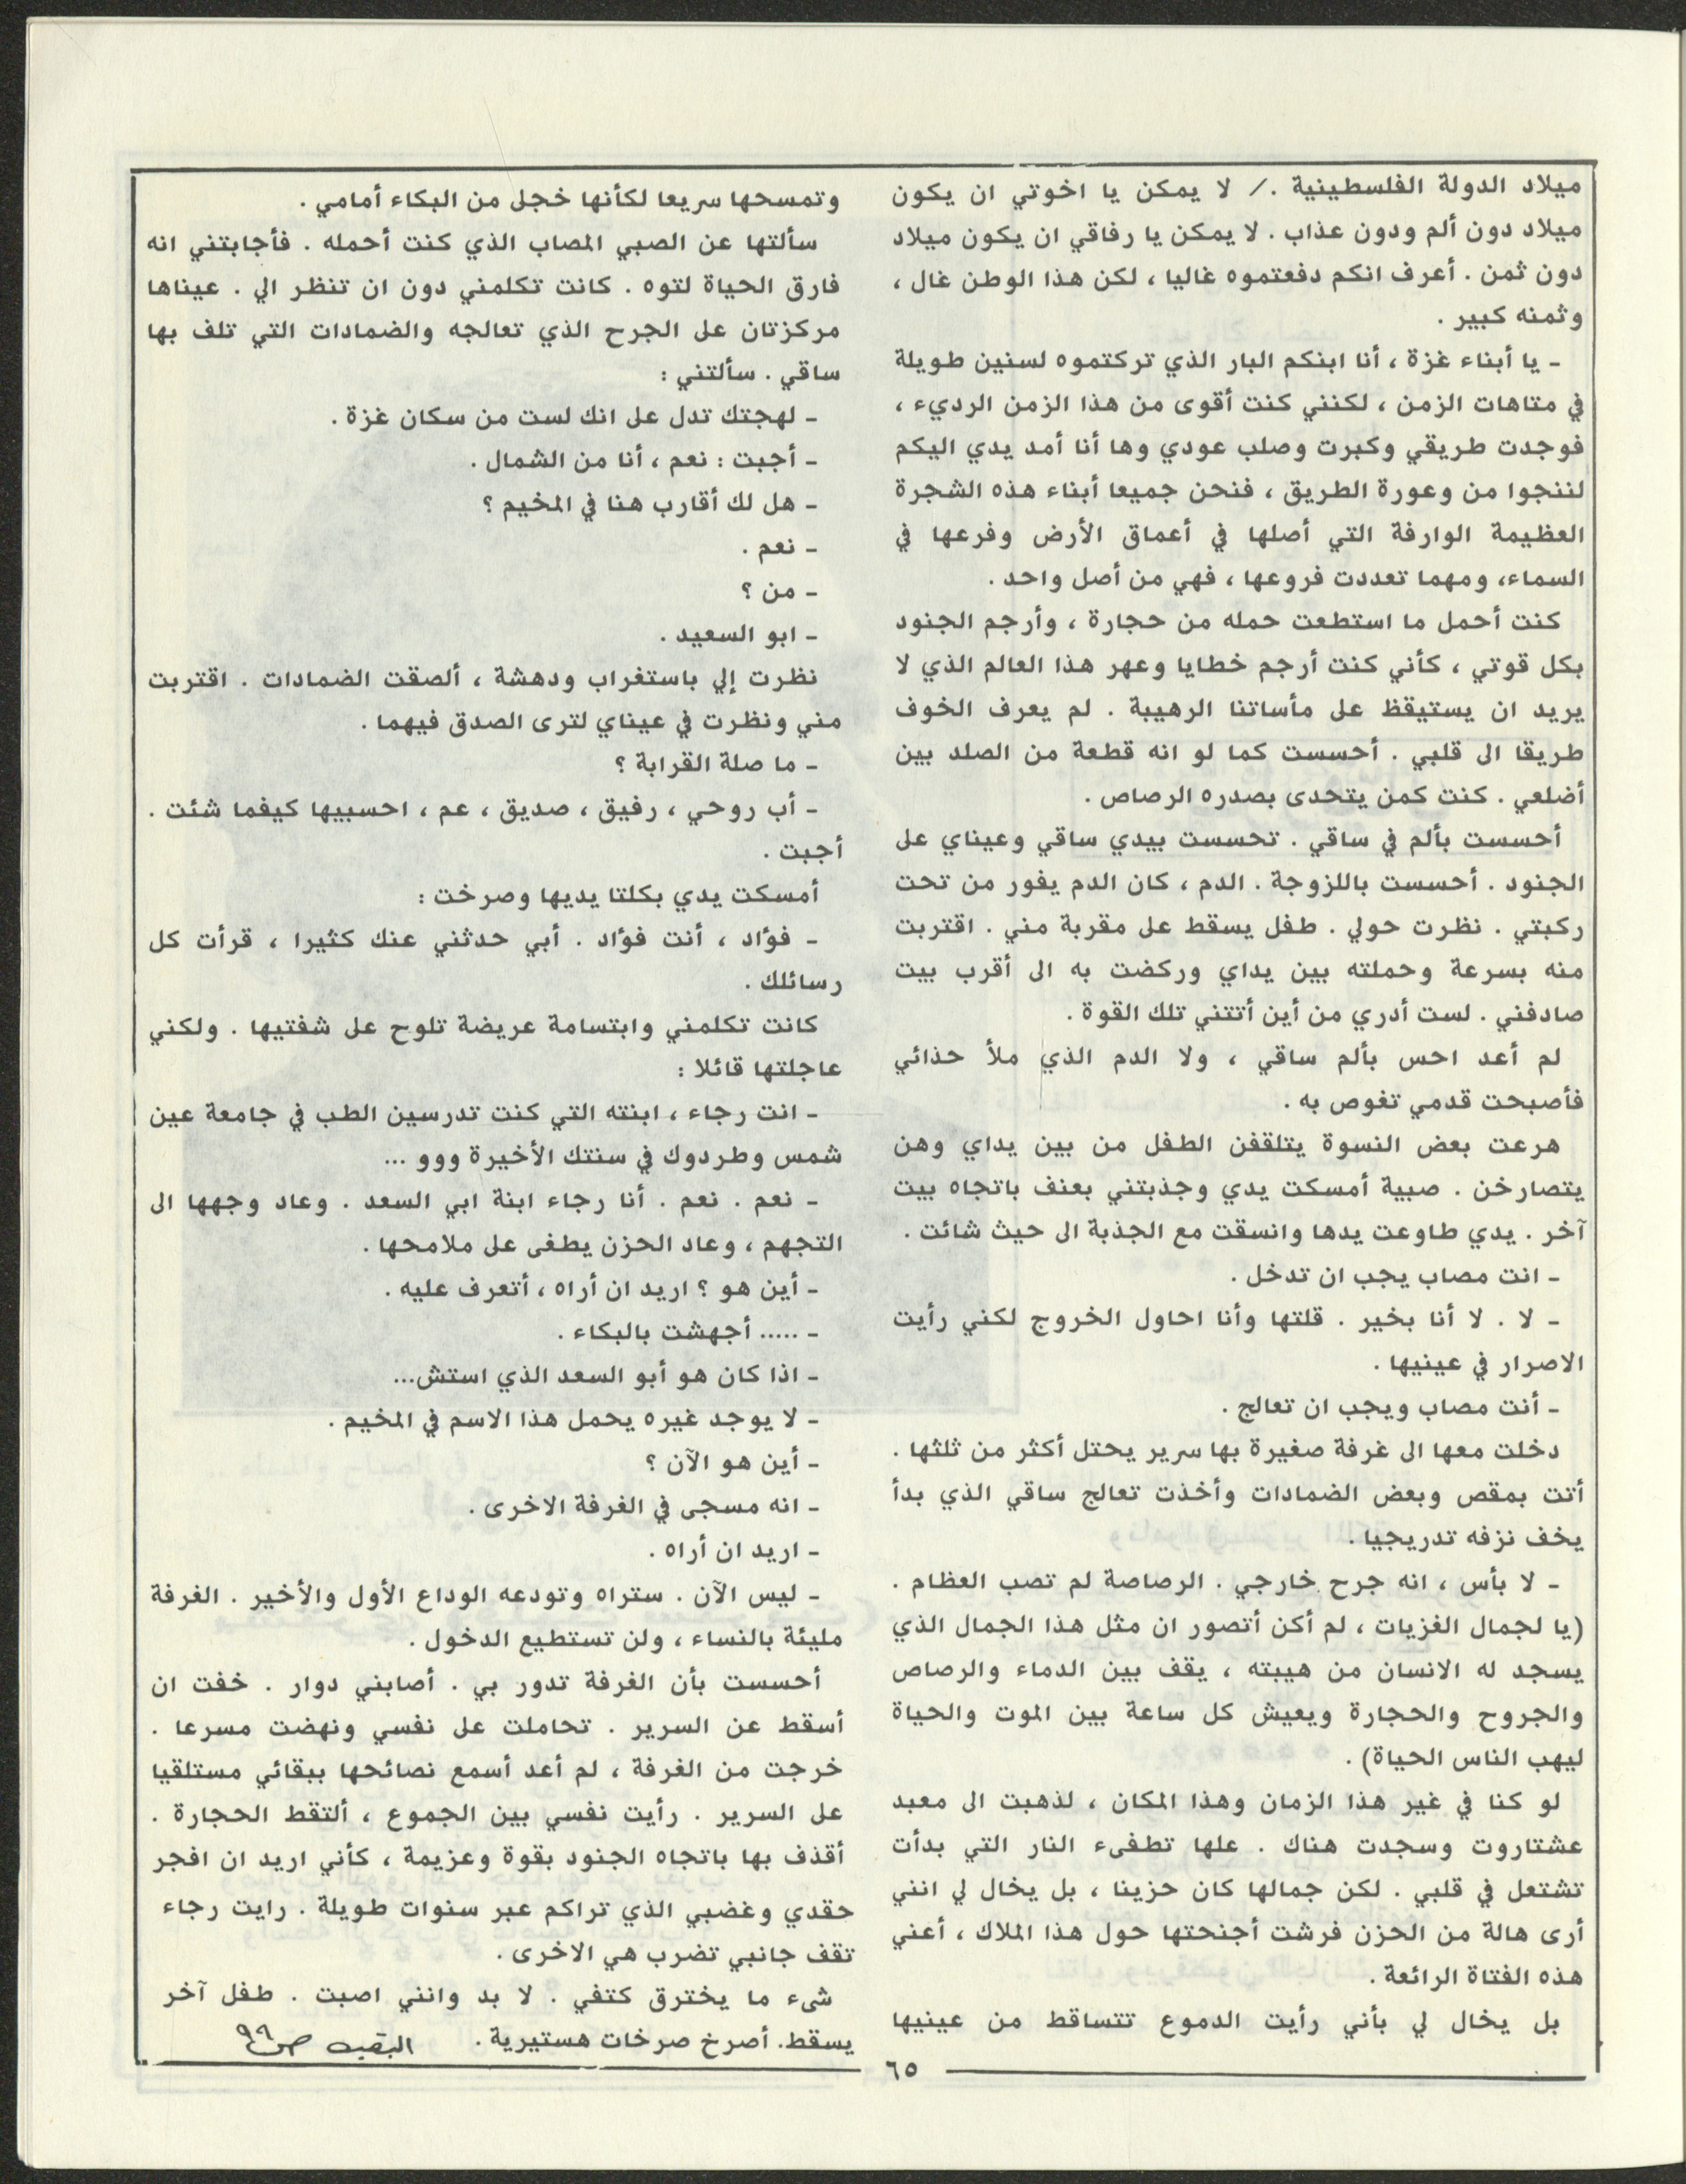 ميلاد الدولة الفلسطينية ./ لا يمكن يا اخوتي ان يكون
ميلاد دون ألم ودون عذاب . لا يمكن يا رفاقي ان يكون ميلاد
دون ثمن . أعرف انكم دفعتموه غاليا ، لكن هذا الوطن غال ،
وثمنه كبير .
- يا أبناء غزة ، أنا ابنكم البار الذي تركتموه لسنين طويلة
في متاهات الزمن ، لكنني كنت أقوى من هذا الزمن الرديء ،
فوجدت طريقي وكبرت وصلب عودي وها أنا أمد يدي اليكم
لننجوا من وعورة الطريق ، فنحن جميعا أبناء هذه الشجرة
العظيمة الوارفة التي أصلها في أعماق الأرض وفرعها في
السماء، ومهما تعددت فروعها ، فهي من أصل واحد .
كنت أحمل ما استطعت حمله من حجارة ، وأرجم الجنود
بكل قوتي ، كأني كنت أرجم خطايا وعهر هذا العالم الذي لا
يريد ان يستيقظ على مأساتنا الرهيبة . لم يعرف الخوف
طريقا الى قلبي . أحسست كما لو انه قطعة من الصلد بين
أضلعي . كنت كمن يتحدى بصدره الرصاص .
أحسست بألم في ساقي . تحسست بيدي ساقي وعيناي على
الجنود . أحسست باللزوجة . الدم ، كان الدم يفور من تحت
ركبتي . نظرت حولي . طفل يسقط على مقربة مني . اقتربت
منه بسرعة وحملته بين يداي وركضت به الى أقرب بيت
صادفني . لست أدري من أين أتتني تلك القوة .
لم أعد احس بألم ساقي ، ولا الدم الذي ملأ حذائي
فأصبحت قدمي تغوص به .
هرعت بعض النسوة يتلقفن الطفل من بين يداي وهن
يتصارخن . صبية أمسكت يدي وجذبتني بعنف باتجاه بيت
آخر . يدي طاوعت يدها وانسقت مع الجذبة الى حيث شائت .
- انت مصاب يجب ان تدخل .
- لا . لا أنا بخير . قلتها وأنا احاول الخروج لكني رأيت
الاصرار في عينيها .
- أنت مصاب ويجب ان تعالج .
دخلت معها الى غرفة صغيرة بها سرير يحتل أكثر من ثلثها .
أتت بمقص وبعض الضمادات وأخذت تعالج ساقي الذي بدأ
يخف نزفه تدريجيا .
- لا بأس ، انه جرح خارجي . الرصاصة لم تصب العظام .
(يا لجمال الغزيات ، لم أكن أتصور ان مثل هذا الجمال الذي
يسجد له الانسان من هيبته ، يقف بين الدماء والرصاص
والجروح والحجارة ويعيش كل ساعة بين الموت والحياة
ليهب الناس الحياة) .
لو كنا في غير هذا الزمان وهذا المكان ، لذهبت الى معبد
عشتاروت وسجدت هناك . علها تطفىء النار التي بدأت
تشتعل في قلبي . لكن جمالها كان حزينا ، بل يخال لي انني
أرى هالة من الحزن فرشت أجنحتها حول هذا الملاك ، أعني
هذه الفتاة الرائعة .
بل يخال لي بأني رأيت الدموع تتساقط من عينيها
وتمسحها سريعا لكأنها خجل من البكاء أمامي .
سألتها عن الصبي المصاب الذي كنت أحمله . فأجابتني انه
فارق الحياة لتوه . كانت تكلمني دون ان تنظر الي . عيناها
مركزتان على الجرح الذي تعالجه والضمادات التي تلف بها
ساقي . سألتني :
- لهجتك تدل على انك لست من سكان غزة .
- أجبت : نعم ، أنا من الشمال .
- هل لك أقارب هنا في المخيم ؟
- نعم .
- من ؟
- ابو السعيد .
نظرت إلي باستغراب ودهشة ، ألصقت الضمادات . اقتربت
مني ونظرت في عيناي لترى الصدق فيهما .
- ما صلة القرابة ؟
- أب روحي ، رفيق ، صديق ، عم ، احسبيها كيفما شئت .
أجبت .
أمسكت يدي بكلتا يديها وصرخت :
- فؤاد ، أنت فؤاد . أبي حدثني عنك كثيرا ، قرأت كل
رسائلك .
كانت تكلمني وابتسامة عريضة تلوح على شفتيها . ولكني
عاجلتها قائلا :
- انت رجاء ، ابنته التي كنت تدرسين الطب في جامعة عين
شمس وطردوك في سنتك الأخيرة ووو ...
- نعم . نعم . أنا رجاء ابنة ابي السعد . وعاد وجهها الى
التجهم ، وعاد الحزن يطغى على ملامحها .
- أين هو ؟ اريد ان أراه ، أتعرف عليه .
- ..... أجهشت بالبكاء .
- اذا كان هو أبو السعد الذي استش...
- لا يوجد غيره يحمل هذا الاسم في المخيم .
- أين هو الآن ؟
- انه مسجى في الغرفة الاخرى .
- اريد ان أراه .
- ليس الآن . ستراه وتودعه الوداع الأول والأخير . الغرفة
مليئة بالنساء ، ولن تستطيع الدخول .
أحسست بأن الغرفة تدور بي . أصابني دوار . خفت ان
أسقط عن السرير . تحاملت على نفسي ونهضت مسرعا .
خرجت من الغرفة ، لم أعد أسمع نصائحها ببقائي مستلقيا
على السرير . رأيت نفسي بين الجموع ، ألتقط الحجارة .
أقذف بها باتجاه الجنود بقوة وعزيمة ، كأني اريد ان افجر
حقدي وغضبي الذي تراكم عبر سنوات طويلة . رايت رجاء
تقف جانبي تضرب هي الاخرى .
شىء ما يخترق كتفي . لا بد وانني اصبت . طفل آخر
يسقط. أصرخ صرخات هستيرية . البقيه ص٩٩
٦٥